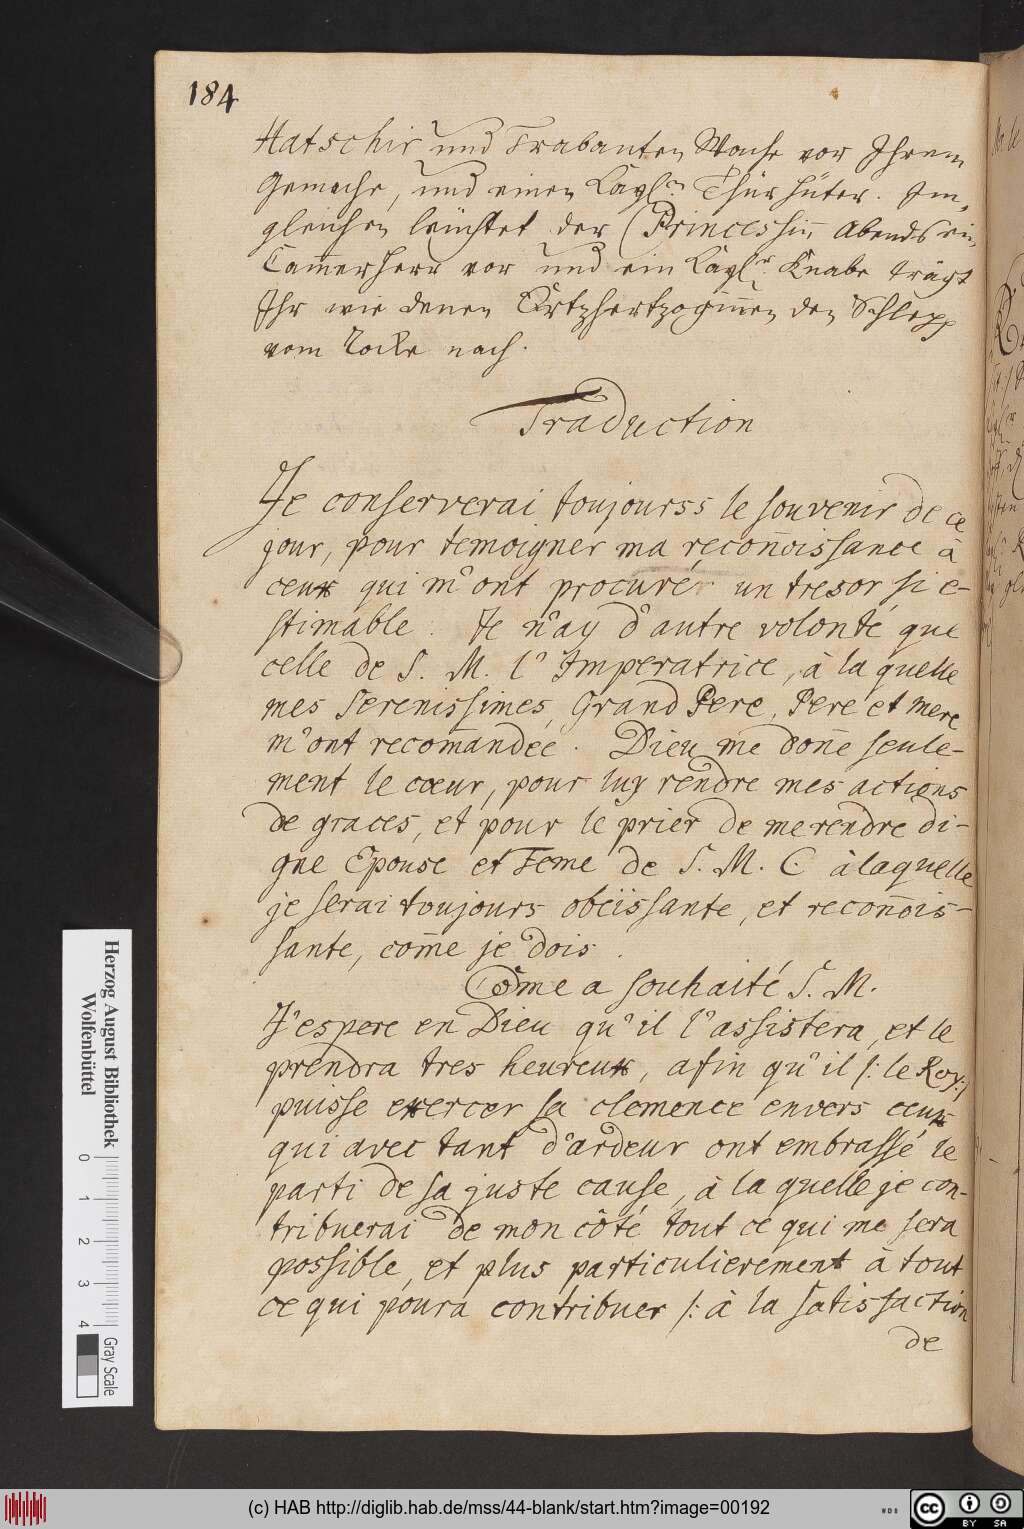 184
Hatschir und Trabanten Wache vor Ihrem
Gemache, und einen Kayſ.n Thür hüter. Im-
gleichen leüchtet der Princeshin Abends ein
Cam̄erherr vor und ein Kayſ.r Knabe trägt
Ihr wie denen Ertzhertzogin̄en den Schlepp
vom Rocke nach.
Traduction
Je conserverai toujourss le souvenir de ce
jour, pour temoigner ma recon̄oissance à
ceux qui m'ont procuré un tresor si e-
stimable. Je n'ay d'autre volonté que
celle de S. M. l'Imperatrice, à la quelle
mes Serenissimes, Grand Pere, Pere et mere
m'ont recom̄andée. Dieu me don̄e seule-
ment le cœur, pour luy rendre mes actions
de graces, et pour le prier de me rendre di-
gne Epouse et Fem̄e de S. M. C à laquelle
je serai toujours obeïssante, et recon̄ois-
sante, com̄e je dois.
Com̄e a souhaité S. M.
J'espere en Dieu qu'il l'assistera, et le
prendra tres heureux, afin qu'il /: le Roy:/
puisse exercer sa clemence envers ceux
qui avec tant d'ardeur ont embrassé le
parti de sa juste cause, à la quelle je con-
tribuerai de mon côté tout ce qui me sera
possible, et plus particulierement à tout
ce qui poura contribuer /: à la satisfaction
de
Herzog August Bibliothek
Wolfenbüttel
0 1 2 3 4
Gray Scale
(c) HAB http://diglib.hab.de/mss/44-blank/start.htm?image=00192
WDB
cc BY SA